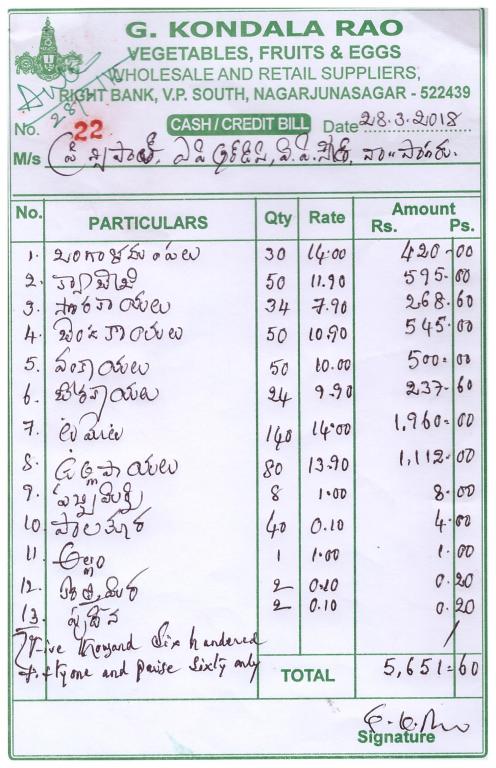 G. KONDALA RAO
VEGETABLES, FRUITS & EGGS
WHOLESALE AND RETAIL SUPPLIERS,
RIGHT BANK, V.P. SOUTH, NAGARJUNASAGAR - 522439
No. 22 CASH / CREDIT BILL Date 28.3.2018
M/s
No. PARTICULARS Qty Rate Amount
Rs. Ps.
1. బంగాళదుంపలు 30 14.00 420-00
2. క్యాబేజి 50 11.90 595-00
3. సొరకాయలు 34 7.90 268.60
4. బెండకాయలు 50 10.90 545.00
5. వంకాయలు 50 10.00 500=00
6. బీరకాయలు 24 9.90 237-60
7. టమోట 140 14.00 1,960=00
8. ఉల్లిపాయలు 80 13.90 1,112.00
9. పచ్చిమిర్చి 8 1.00 8.00
10. పాలకూర 40 0.10 4.00
11. అల్లం 1 1.00 1.00
12. కొత్తిమీర 2 0.10 0.20
13. పుదీన 2 0.10 0.20
Five thousand Six hundered
fiftyone and paise sixty only
TOTAL 5,651=60
Signature